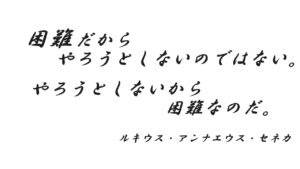 困難だから
やろうとしないのではない。
やろうとしないから
困難なのだ。
ルキウス・アンナエウス・セネカ